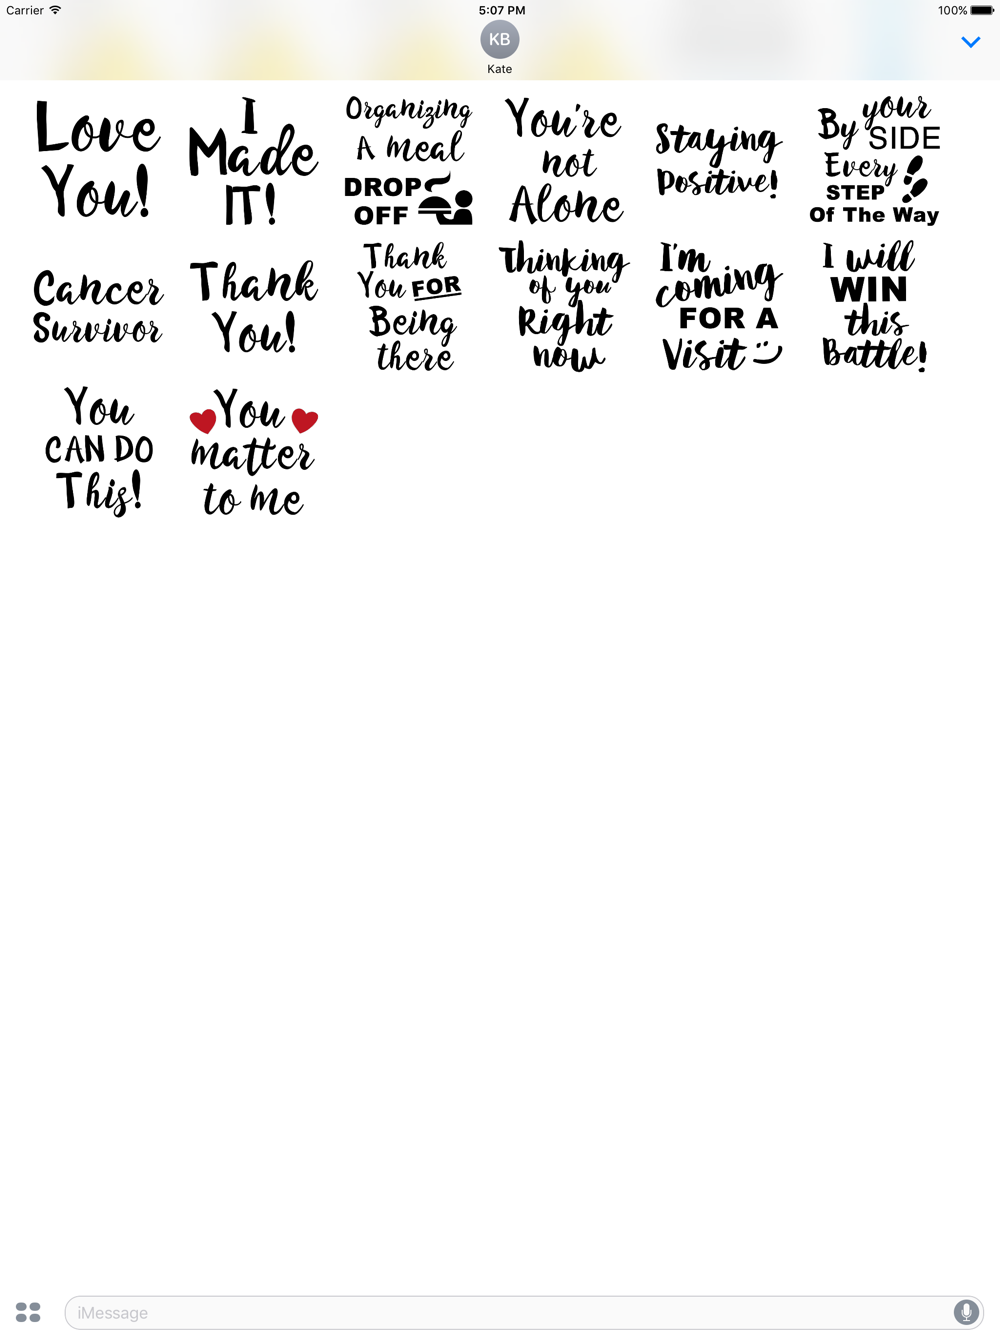 Carrier
5:07 PM
100%
KB
Kate
Love
You!
I
Made
IT!
Organizing
A Meal
DROP
OFF
You're
not
Alone
Staying
Positive!
By your
SIDE
Every
STEP
Of The Way
Cancer
Survivor
Thank
You!
Thank
You FOR
Being
there
Thinking
of you
Right
now
I'm
coming
FOR A
Visit
I will
WIN
this
Battle!
You
CAN DO
This!
You
matter
to me
iMessage